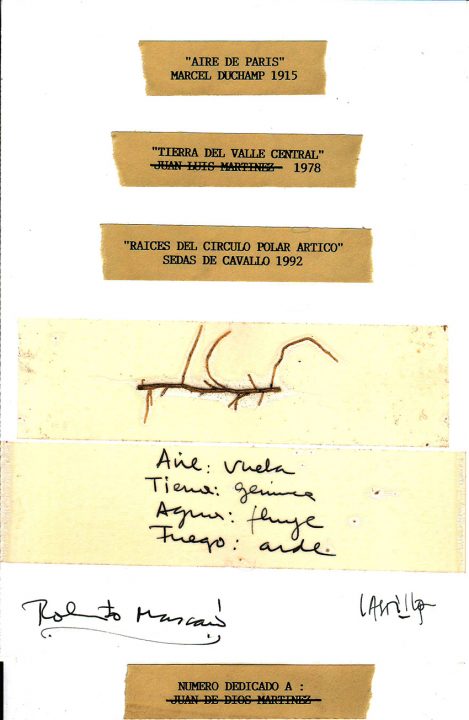 "AIRE DE PARIS"
MARCEL DUCHAMP 1915
"TIERRA DEL VALLE CENTRAL"
JUAN LUIS MARTINEZ 1978
"RAICES DEL CIRCULO POLAR ARTICO"
SEDAS DE CAVALLO 1992
Aire: vuela
Tierra: germina
Agua: fluye
Fuego: arde
Roberto Mascaró
CASTILLO
NUMERO DEDICADO A :
JUAN DE DIOS MARTINEZ